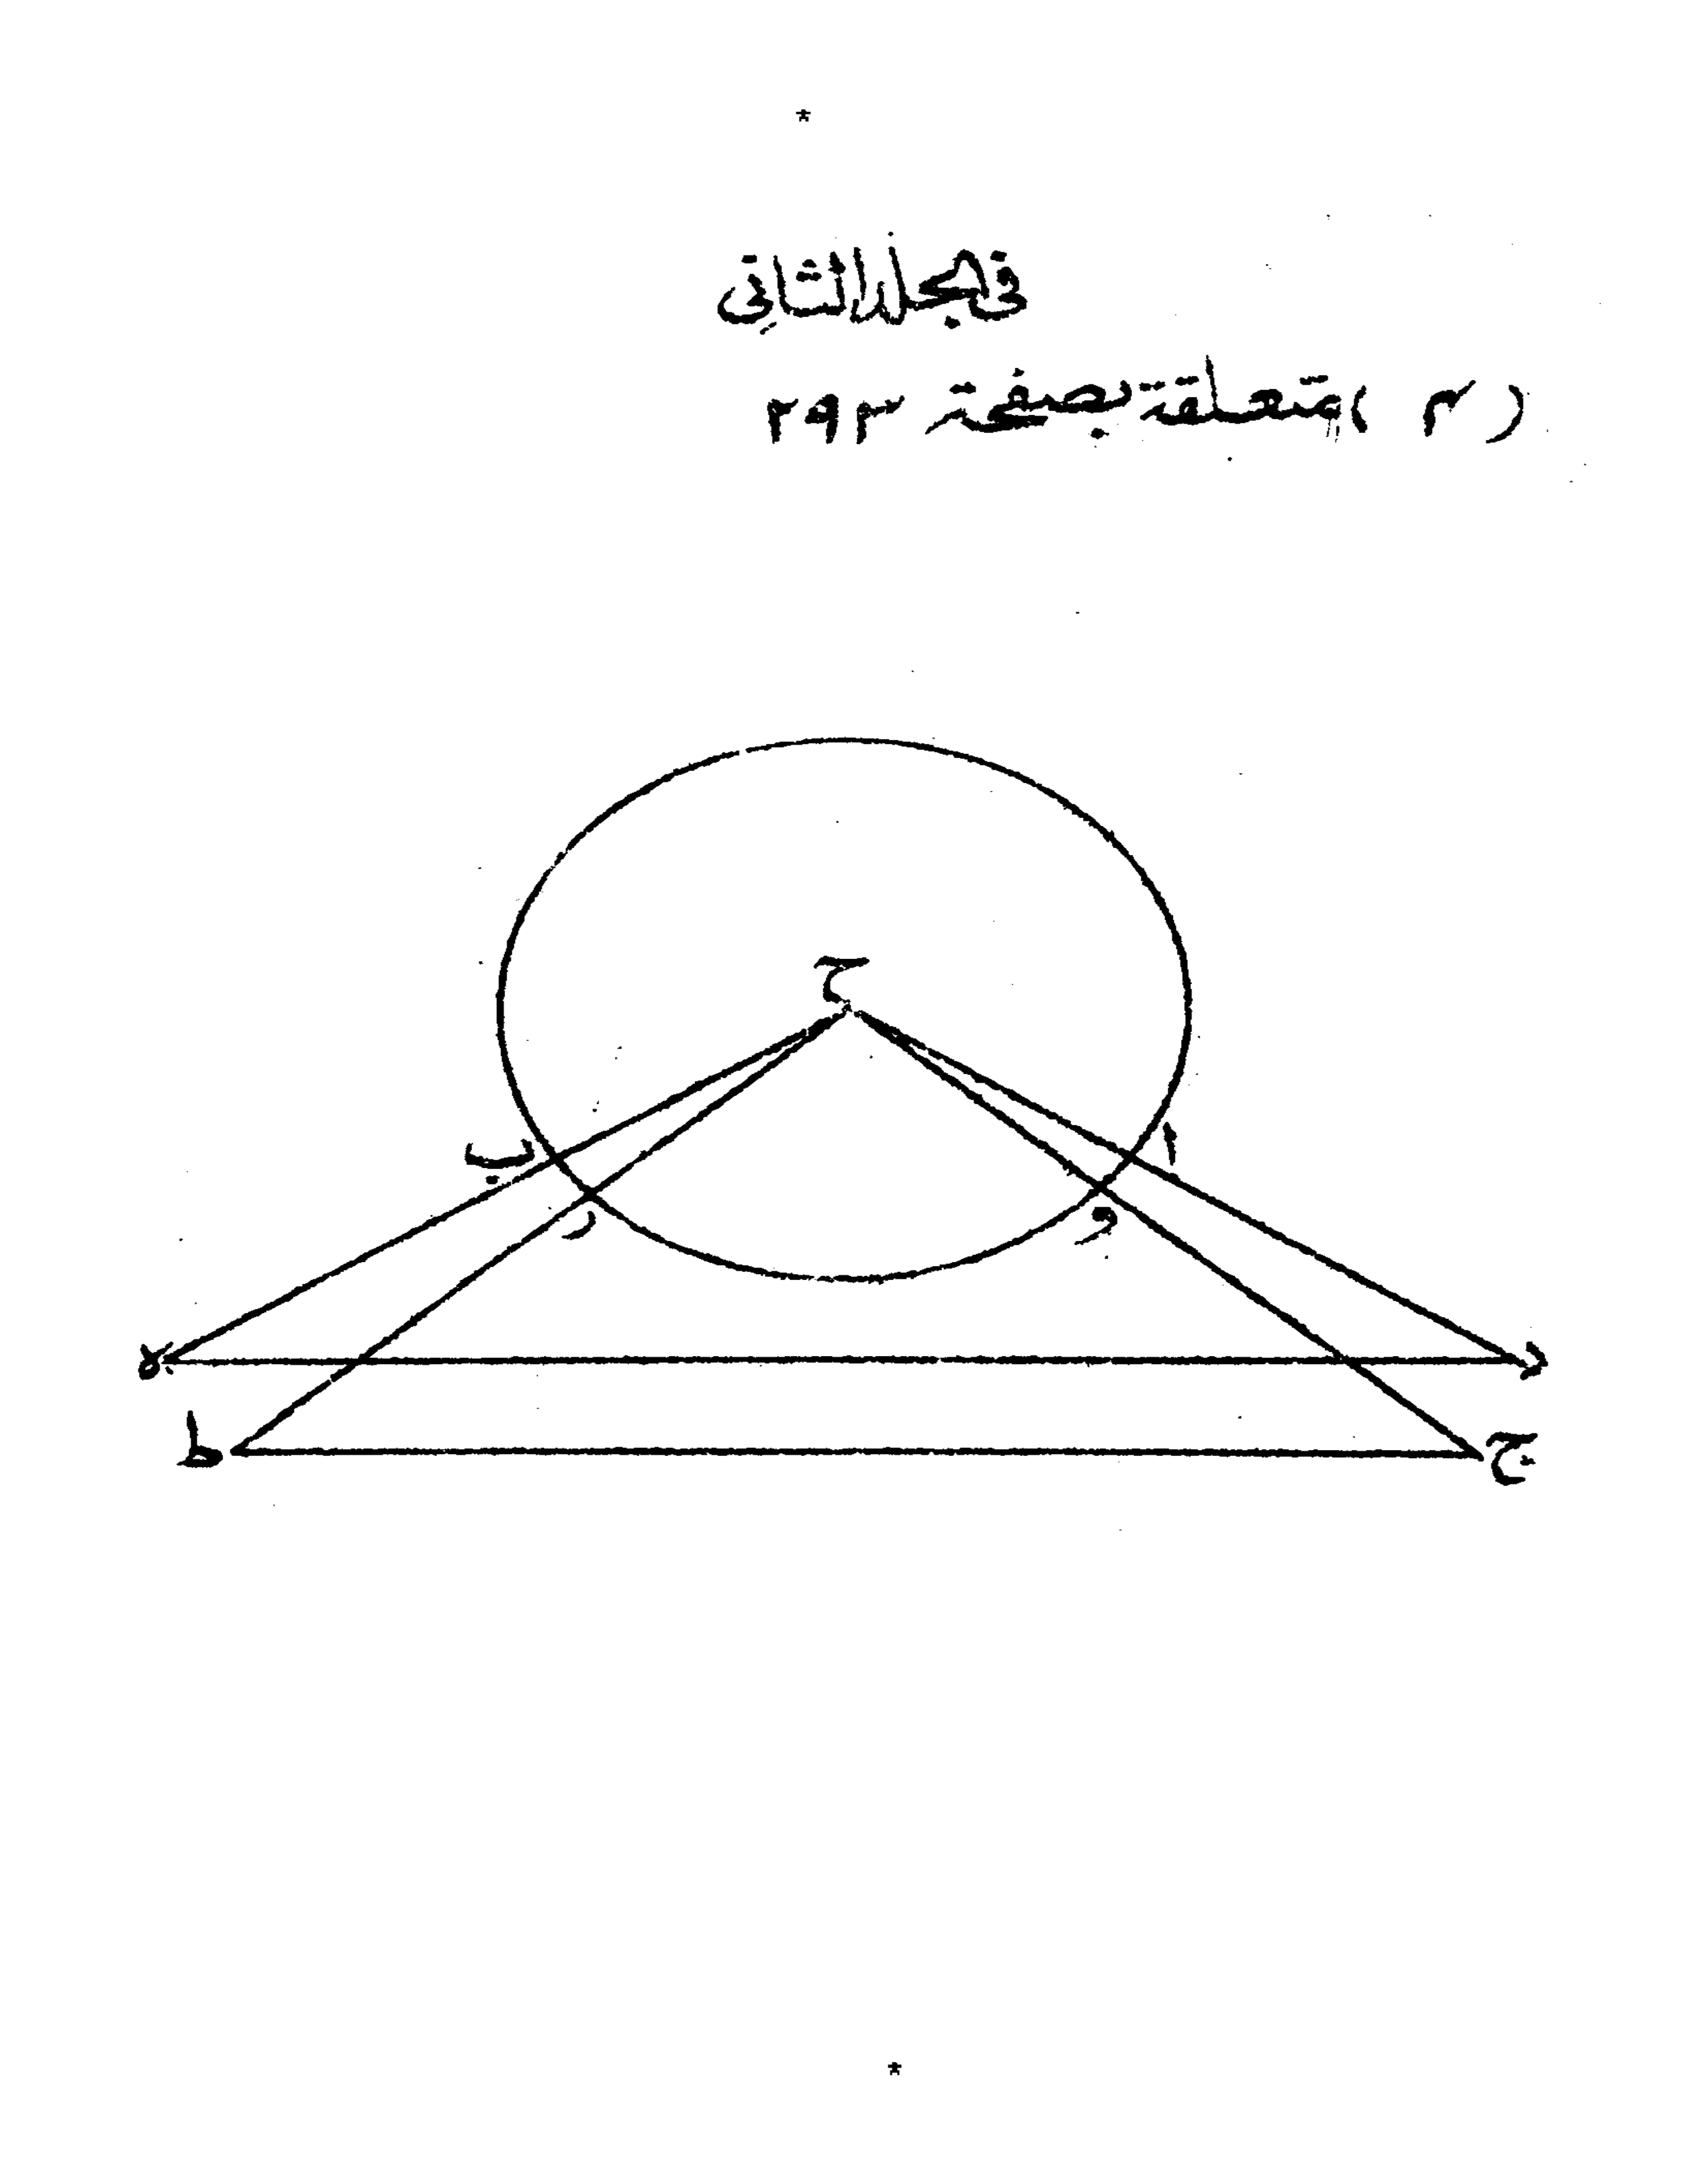 *
في المجلد الثاني
(٣) متعلقة بصفحة ٢٩٣
ح
ا
ب
و
ر
ه
د
ط
ج
*